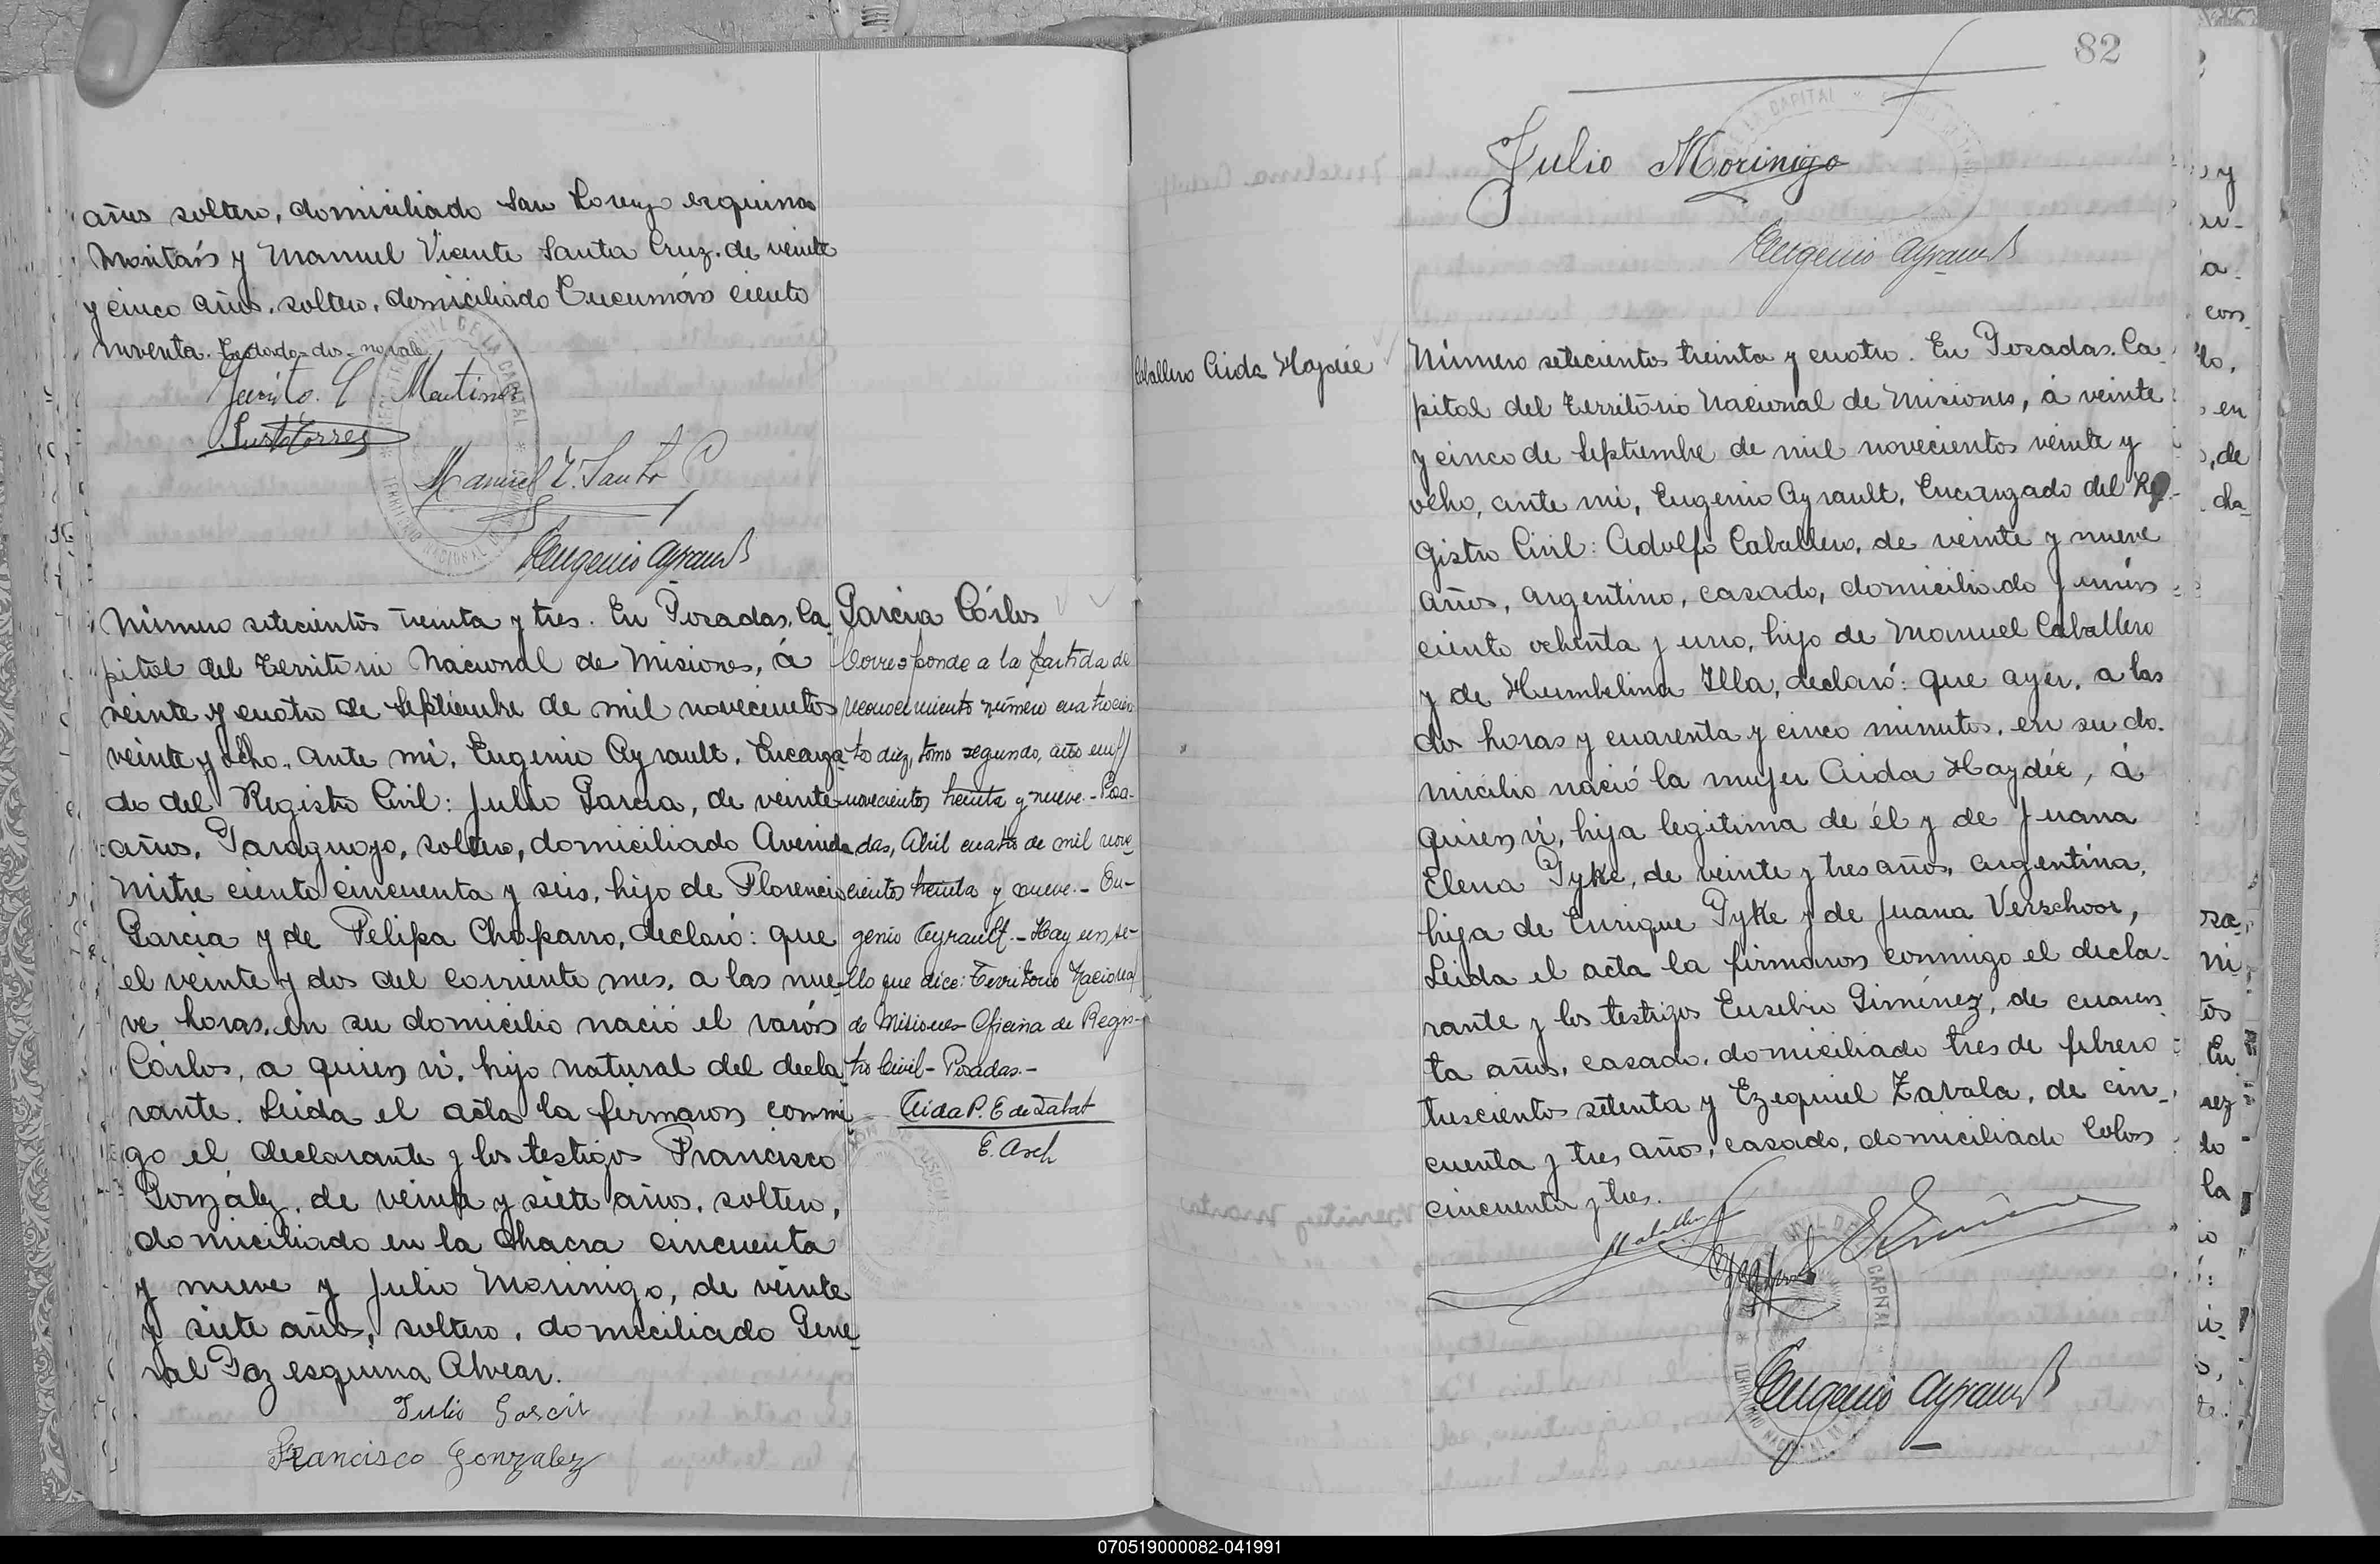 años soltero, domiciliado San Lorenzo esquina
y Manuel Vicente Santa Cruz. de veinte
y cinco años, soltero, domiciliado Tucumán ciento
noventa. Testado-dos-no vale.
Martinez
Justo Torres
Manuel V. Santa C
Eugenio Ayrault
Número setecientos treinta y tres. En Posadas, Ca
pital del Territorio Nacional de Misiones, á
veinte y cuatro de Septiembre de mil novecientos
veinte y ocho, ante mi, Eugenio Ayrault, Encarga
do del Registro Civil: Julio Garcia, de veinte
años, Paraguayo, soltero, domiciliado Avenida
Mitre ciento cincuenta y seis, hijo de Florencio
Garcia y de Felipa Chaparro, declaró: que
el veinte y dos del corriente mes, a las nue-
ve horas, en su domicilio nació el varón
Cárlos, a quien vi, hijo natural del decla
rante. Leida el acta la firmaron conmi
go el declarante y los testigos Francisco
Gonzálz, de veinte y siete años, soltero,
domiciliado en la Chacra cincuenta
y nueve y Julio Morinigo, de veinte
y siete años, soltero, domiciliado Gene
ral Paz esquina Alvear.
Julio Garcia
Francisco Gonzalez
Garcia Cárlos
Corresponde a la partida de
reconocimiento número cuatrocien
to diez, tomo segundo, año mil
novecientos treinta y nueve.- Posa-
das, Abril cuatro de mil nove
cientos treinta y nueve.- Eu-
genio Ayrault.- Hay un se-
llo que dice: Territorio Nacional
de Misiones- Oficina de Regis-
tro Civil- Posadas.-
Aida P. E de Zabat
E. Asch
82
Julio Morinigo
Eugenio Ayrault
Caballero Aida Haydée
Número setecientos treinta y cuatro. En Posadas, Ca
pital del Territorio Nacional de Misiones, á veinte
y cinco de Septiembre de mil novecientos veinte y
ocho, ante mi, Eugenio Ayrault, Encargado del Re-
gistro Civil: Adolfo Caballero, de veinte y nueve
años, argentino, casado, domiciliado Junin
ciento ochenta y uno, hijo de Manuel Caballero
y de Humbelina Illa, declaró: que ayer, a las
dos horas y cuarenta y cinco minutos, en su do-
micilio nació la mujer Aida Haydée, á
quien vi, hija legitima de él y de Juana
Elena Tyke, de veinte y tres años, argentina,
hija de Enrique Tyke y de Juana Verschoor,
Leida el acta la firmaron conmigo el decla-
rante y los testigos Eusebio Giménez, de cuaren
ta años, casado, domiciliado tres de febrero
trescientos setenta y Ezequiel Zavala, de cin-
cuenta y tres años, casado, domiciliado Colon
cincuenta y tres.
Eugenio Ayrault
070519000082-041991